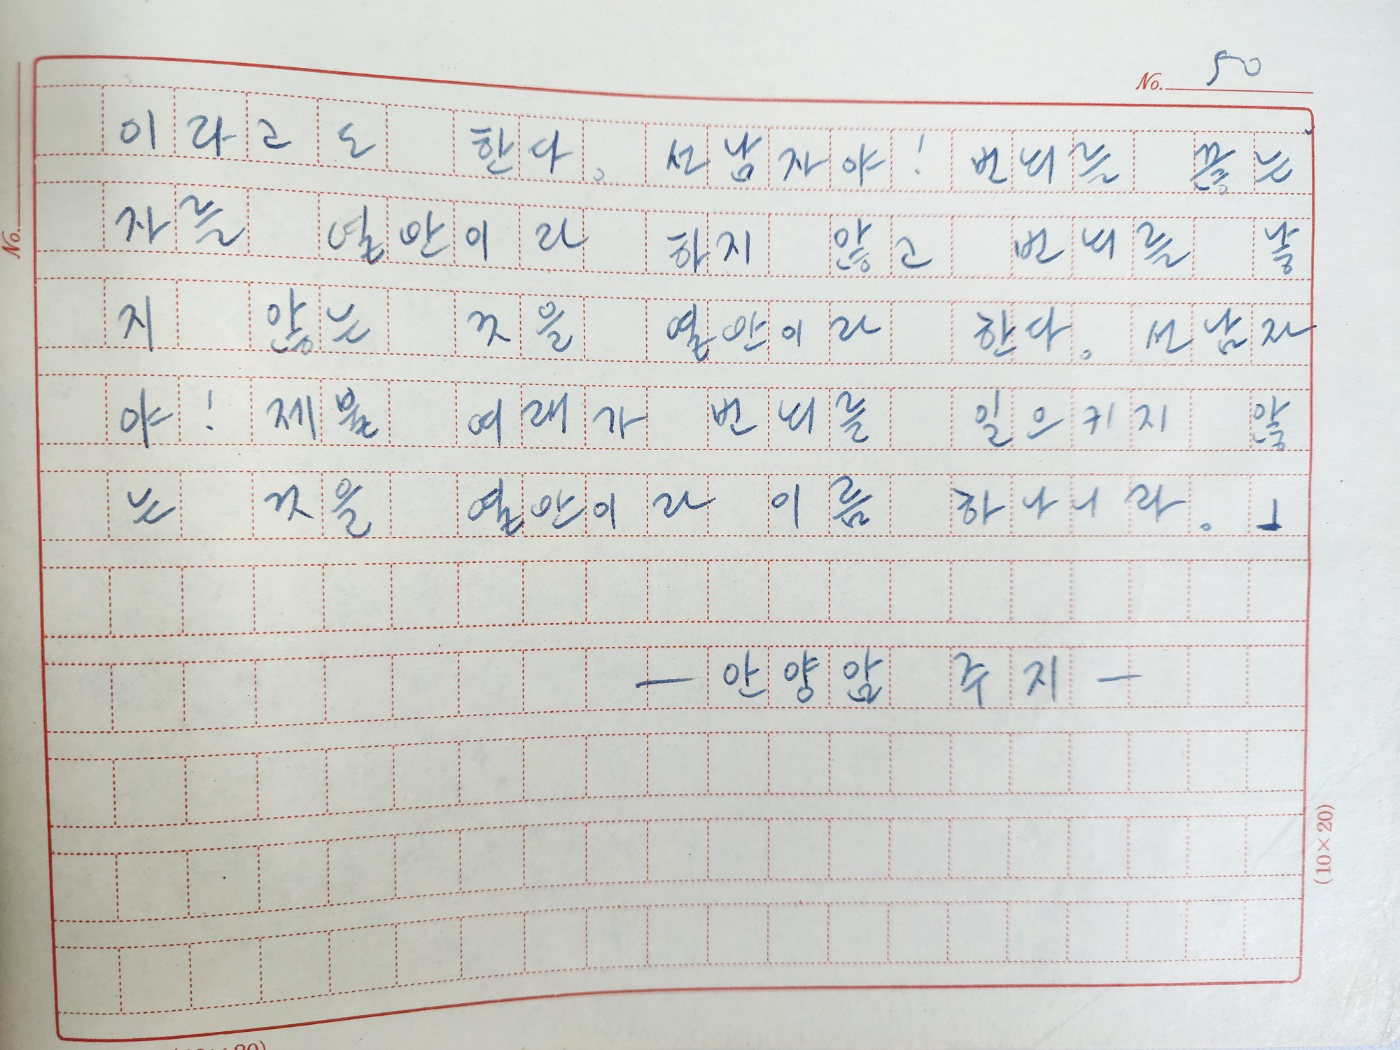 No. 50
이라고도 한다. 선남자야! 번뇌를 끊는
자를 열반이라 하지 않고 번뇌를 낳
지 않는 것을 열반이라 한다. 선남자
야! 제불 여래가 번뇌를 일으키지 않
는 것을 열반이라 이름 하나니라.」
— 안양암 주지 —
No.
(10×20)